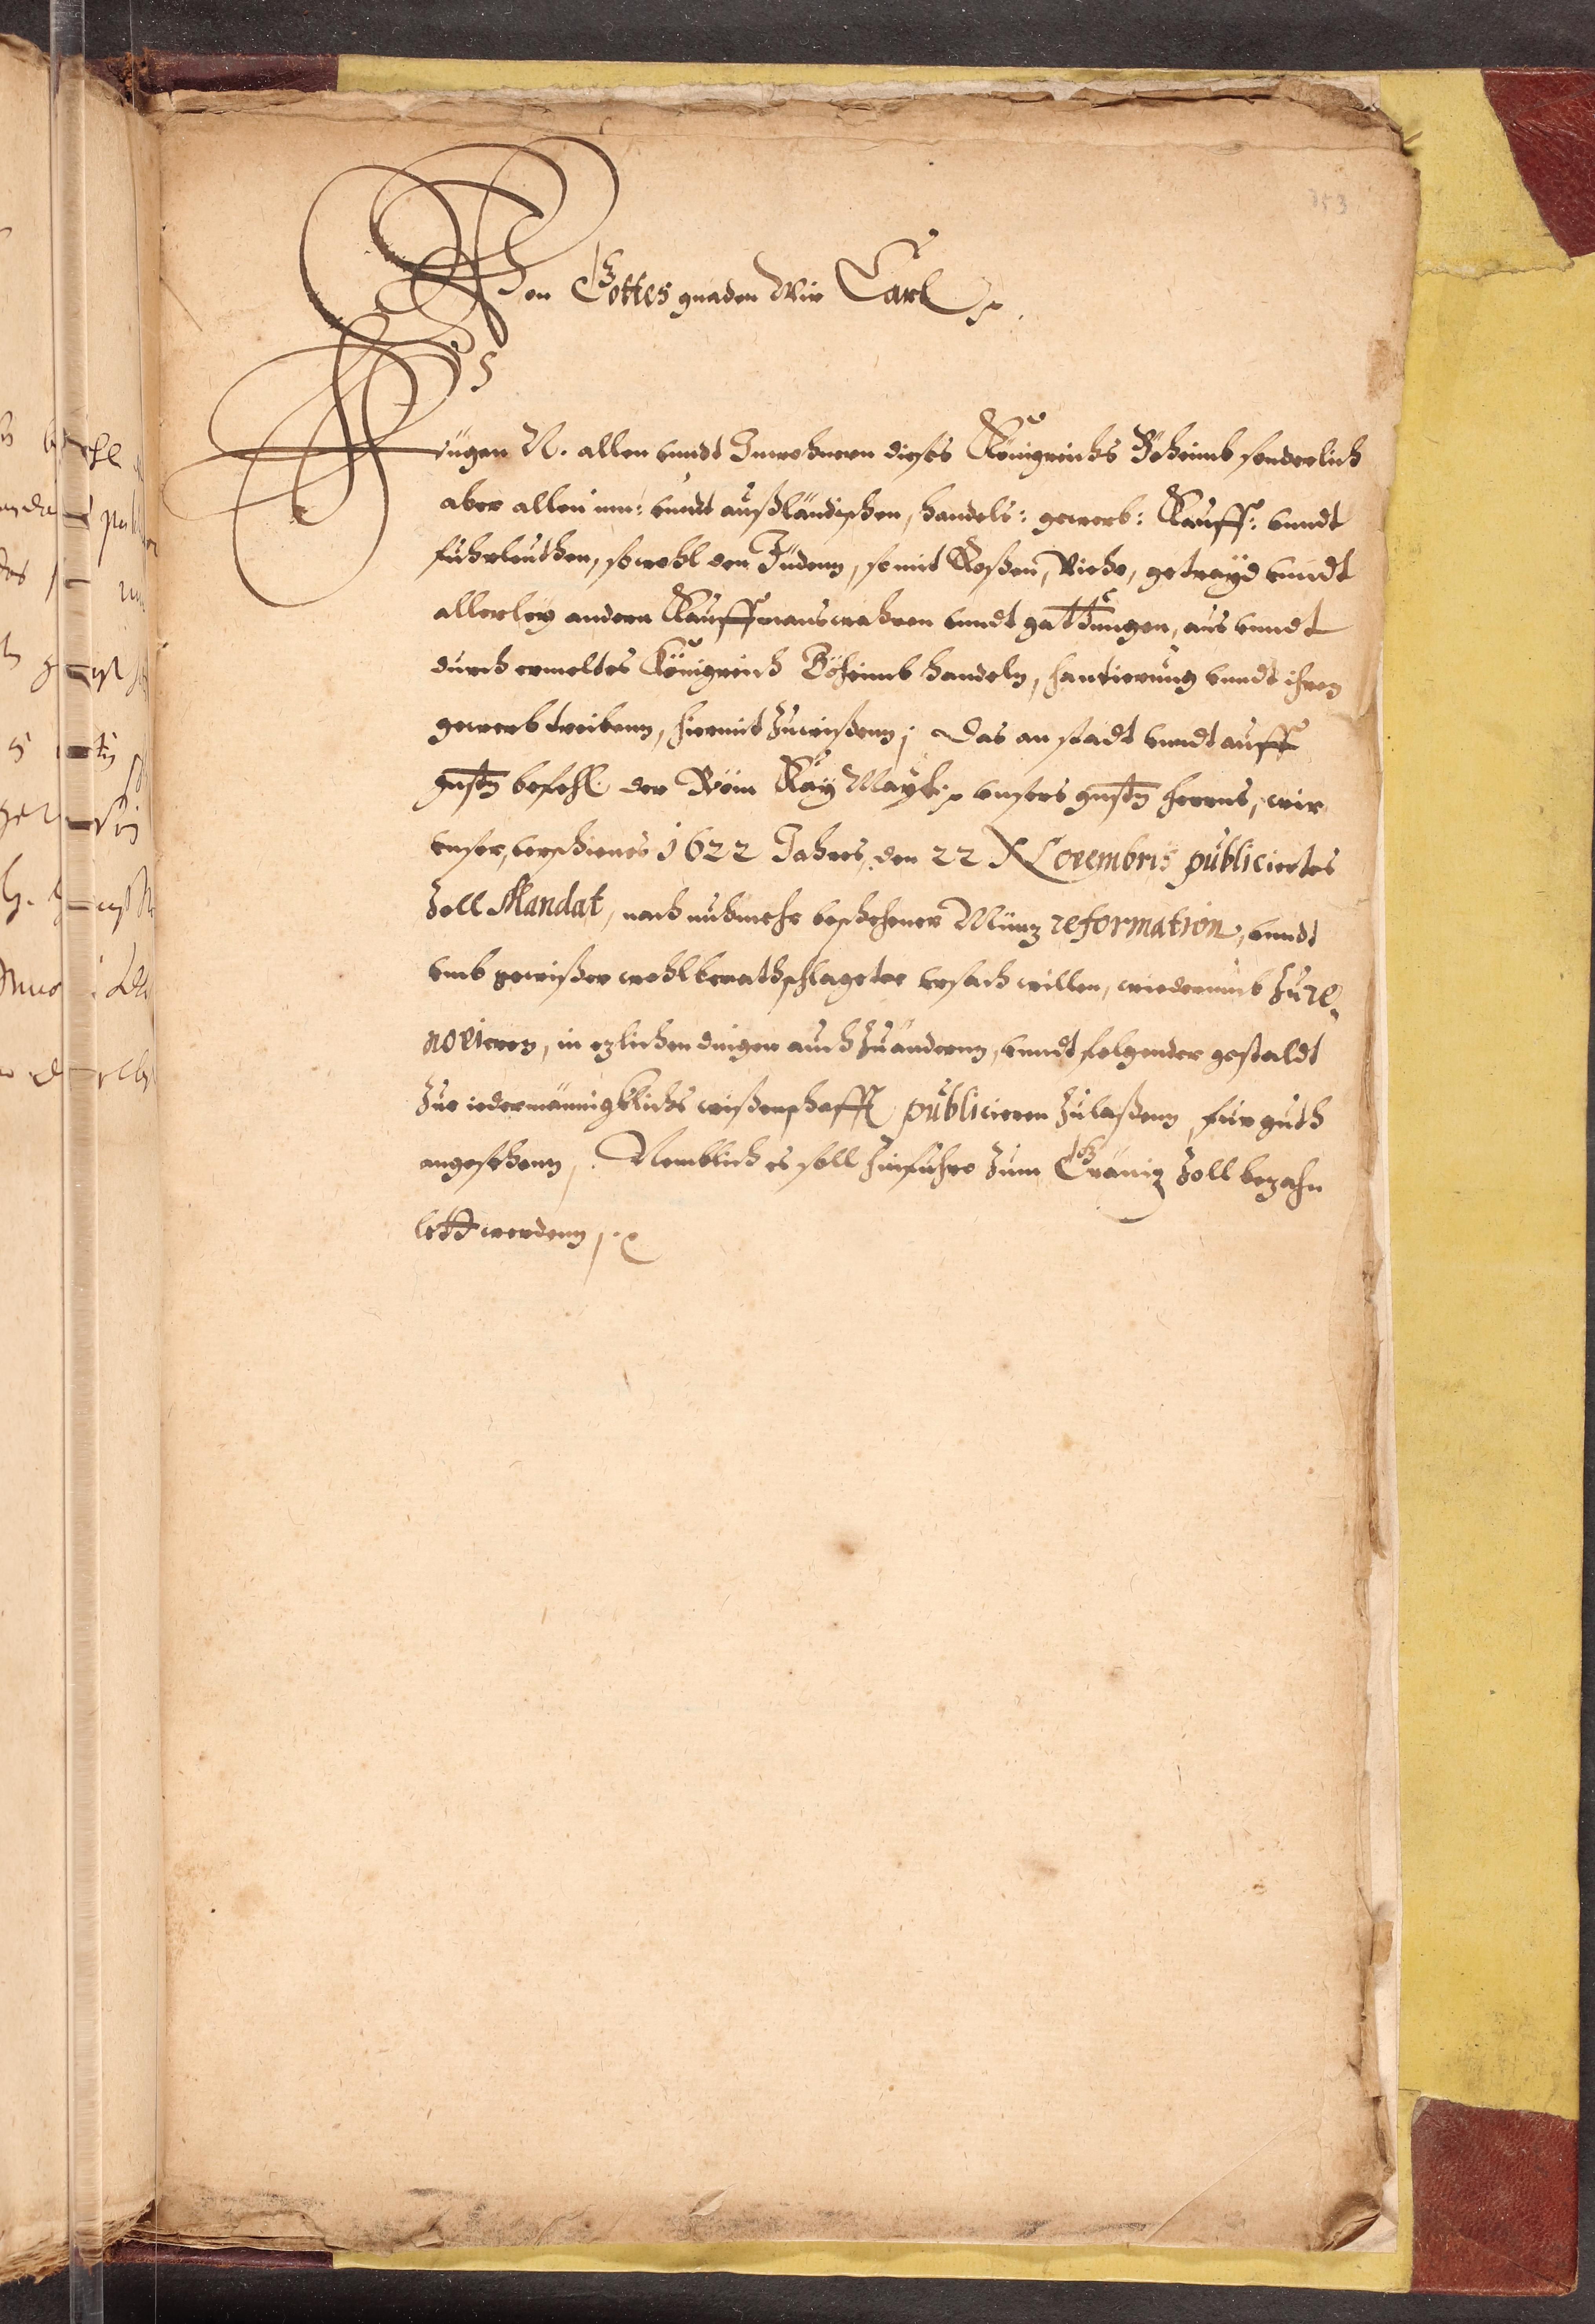 353
Von Gottes gnaden Wir Carl p.
Fuegen N. allen vnndt Inwohnern dieses Königreichs Böheimb sonderlich
aber allen inn: vnndt außländischen, handels: gewerb: Kauff: vnndt
fuhrleuthen, sowohl den Juden, so mit Roßen, Viehe, getrayd vnndt
allerley andern Kauffmanswahren vnndt gattungen, aus vnndt
durch ermeltes Königreich Böheimb handeln, hantierung vnndt ihren
gewerb treibenn, hiermit zuwißenn; Das an stadt vnndt auff
gnstn befehl der Röm Kay Mayt: p vnsers gnstn herrns, wir
vnser, verschienes 1622 Jahres, den 22 Novembris publiciertes
Zoll Mandat, nach nuhmehr beschehener Münz reformation, vnndt
vmb gewißer wohlberathschlageter vrsach willen, wiederumb zu re-
noviren, in ezlichen dingen auch zuändern, vnndt folgender gestaldt
zue iedermännigklichs wißenschafft publicieren zulaßenn, fur guth
angesehenn. Nemblich es soll hinfuhro zum Gräniz Zoll bezah
lett werdenn.